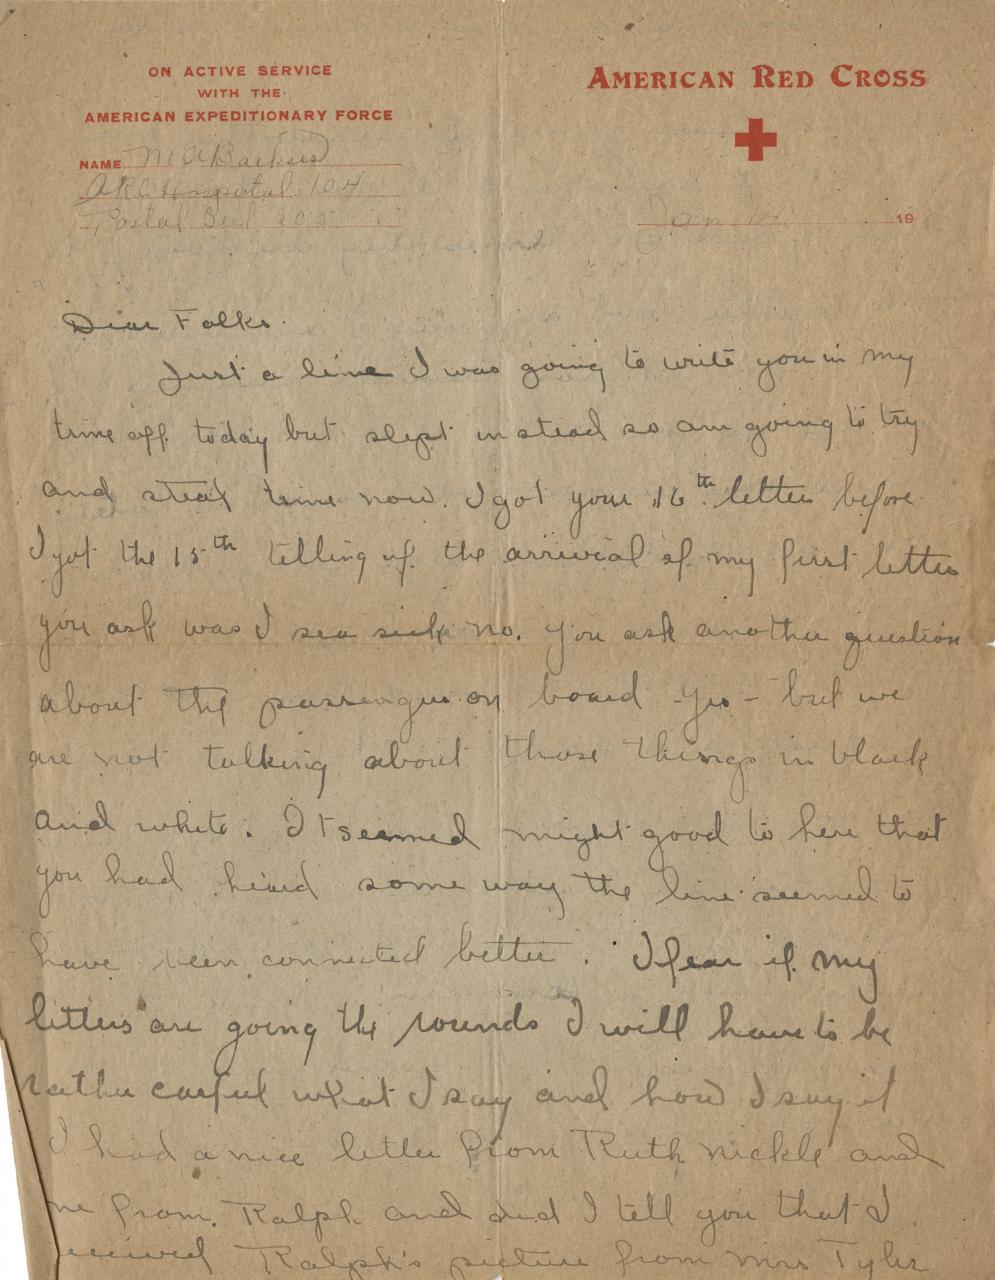 ON ACTIVE SERVICE
WITH THE
AMERICAN EXPEDITIONARY FORCE
AMERICAN RED CROSS
NAME M A
ARC Hospital 104
Postal 205
Jan 19
Dear Folks.
Just a line I was going to write you in my
time off today but slept instead so am going to try
and steal time now. I got your 16th letter before
I got the 15th telling of the arrivial of my first letter
you ask was I sea sick no. You ask another question
about the passenger on board - yes - but we
are not talking about those things in black
and white. It seemed might good to here that
you had heard some way the line seemed to
have been connected better. I fear if my
letters are going the rounds I will have to be
rather careful what I say and how I say it
I had a nice letter from Ruth Nickle and
ne from Ralph and did I tell you that I
Ralph's picture from Mrs Tyler